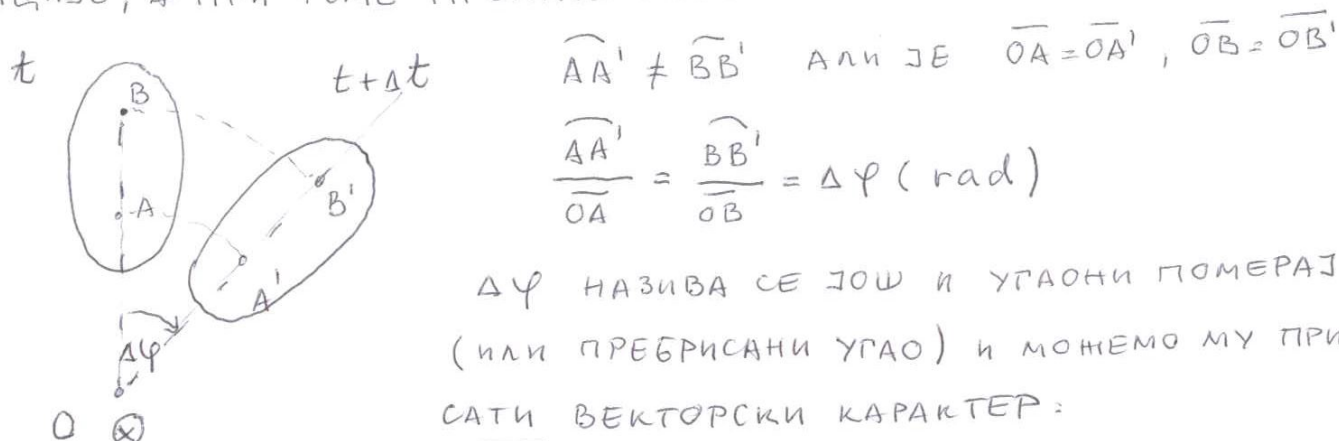 t
t+Δt
B
A
B'
A'
Δφ
O ⊗
A͡A' ≠ B͡B' АЛИ ЈЕ O̅A̅ = O̅A̅', O̅B̅ = O̅B̅'
A͡A'/O̅A̅ = B͡B'/O̅B̅ = Δφ (rad)
Δφ НАЗИВА СЕ ЈОШ И УГАОНИ ПОМЕРАЈ
(ИЛИ ПРЕБРИСАНИ УГАО) И МОЖЕМО МУ ПРИ
САТИ ВЕКТОРСКИ КАРАКТЕР: